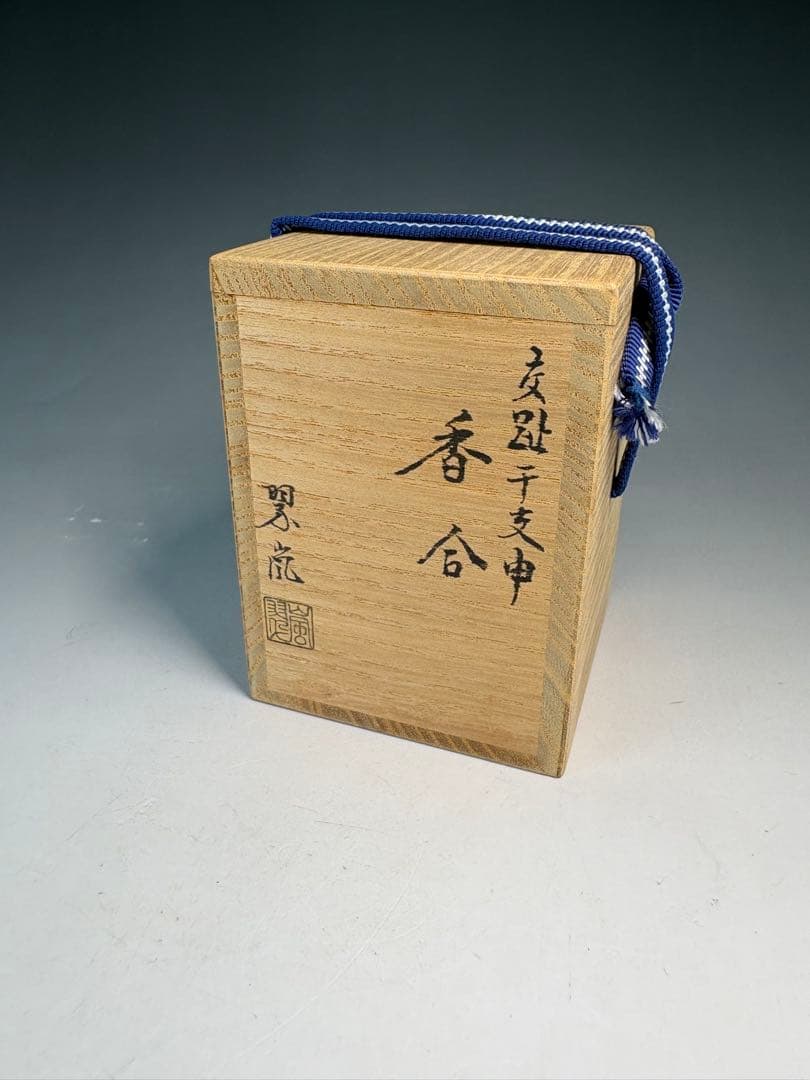 交趾干支申
香合
翠嵐
翠嵐